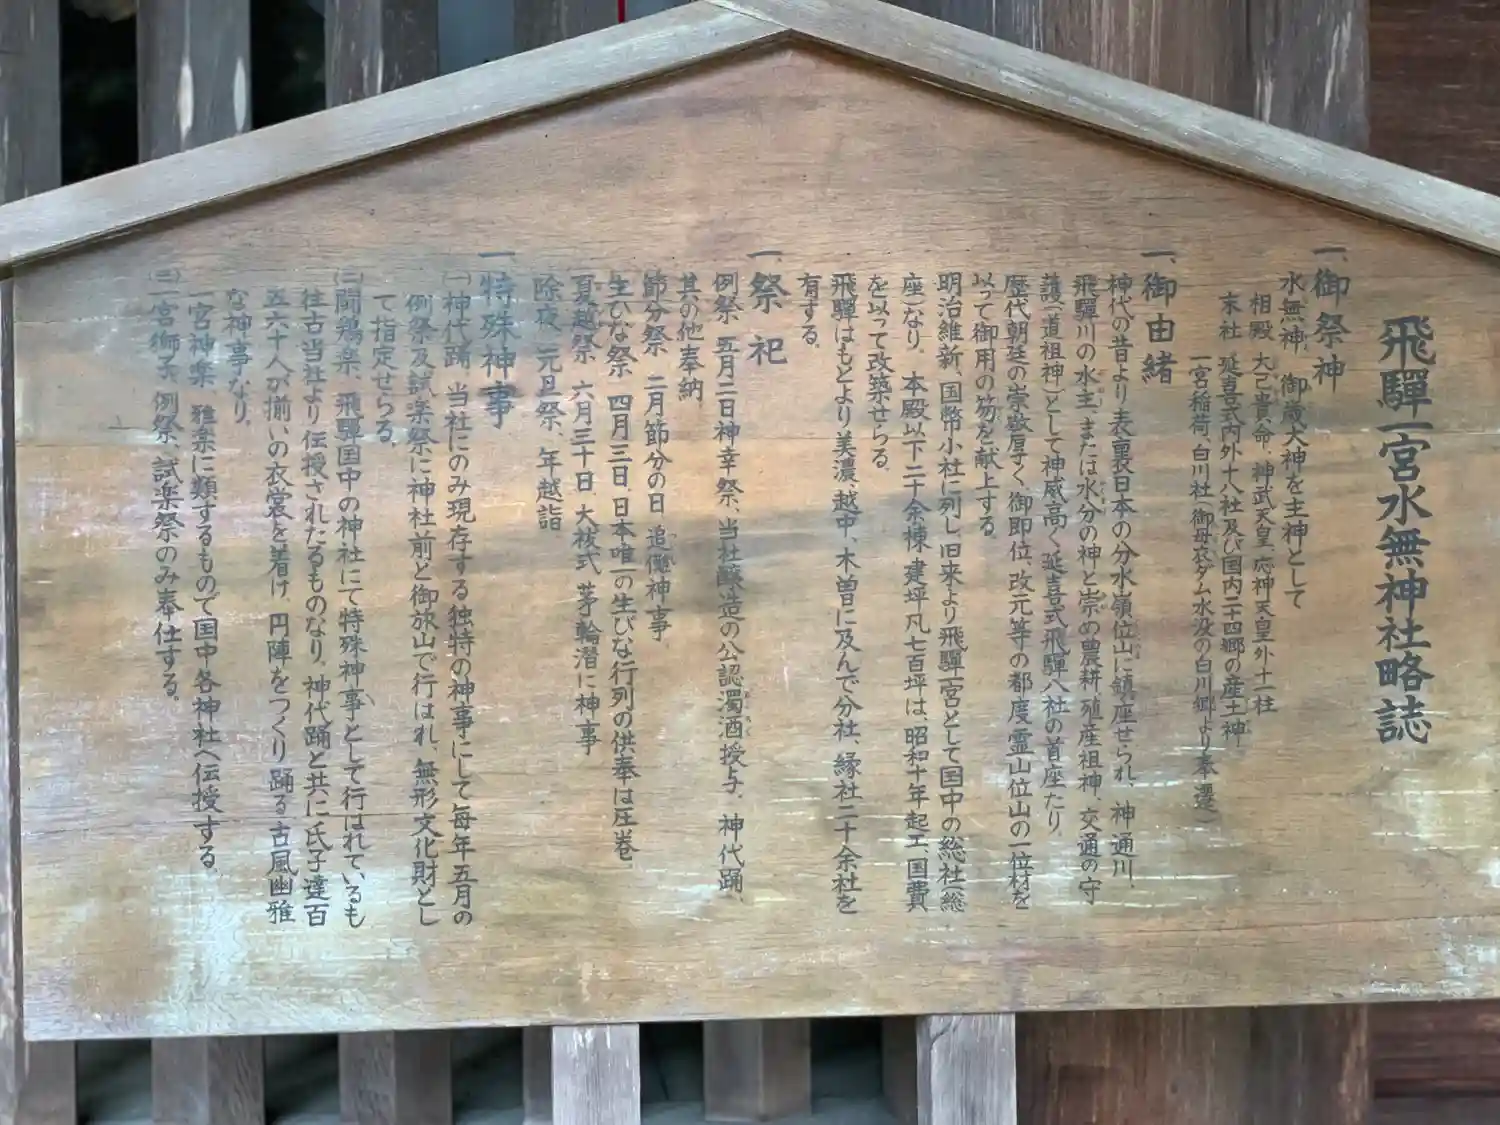 飛驒一宮水無神社略誌
一、御祭神
水無神、御歳大神を主神として
相殿 大己貴命、神武天皇、応神天皇外十一柱
末社 延喜式内外十八社及び国内二十四郷の産土神。
一宮稲荷、白川社(御母衣ダム水没の白川郷より奉遷)
一、御由緒
神代の昔より表裏日本の分水嶺位山に鎮座せられ、神通川、
飛驒川の水主、または水分の神と崇め農耕、殖産祖神、交通の守
護(道祖神)として神威高く延喜式飛驒八社の首座たり。
歴代朝廷の崇敬厚く、御即位、改元等の都度霊山位山の一位材を
以って御用の笏を献上する。
明治維新、国幣小社に列し、旧来より飛驒一宮として国中の総社(総
座)なり。本殿以下二十余棟、建坪凡七百坪は、昭和十年起工、国費
を以って改築せらる。
飛驒はもとより美濃、越中、木曽に及んで分社、縁社二十余社を
有する。
一、祭祀
例祭 五月二日神幸祭、当社醸造の公認濁酒授与。神代踊、
其の他奉納。
節分祭 二月節分の日 追儺神事。
生びな祭 四月三日、日本唯一の生びな行列の供奉は圧巻。
夏越祭 六月三十日、大祓式、茅輪潜に神事
除夜、元旦祭、年越詣
一、特殊神事
(一)神代踊、当社にのみ現存する独特の神事にして毎年五月の
例祭及試楽祭に神社前と御旅山で行はれ、無形文化財とし
て指定せらる。
(二)闘鶏楽、飛驒国中の神社にて特殊神事として行はれているも
往古当社より伝授されたるものなり。神代踊と共に氏子達百
五六十人が揃いの衣裳を着け、円陣をつくり踊る古風幽雅
な神事なり。
一宮神楽、雅楽に類するもので国中各神社へ伝授する。
(三)一宮獅子、例祭、試楽祭のみ奉仕する。